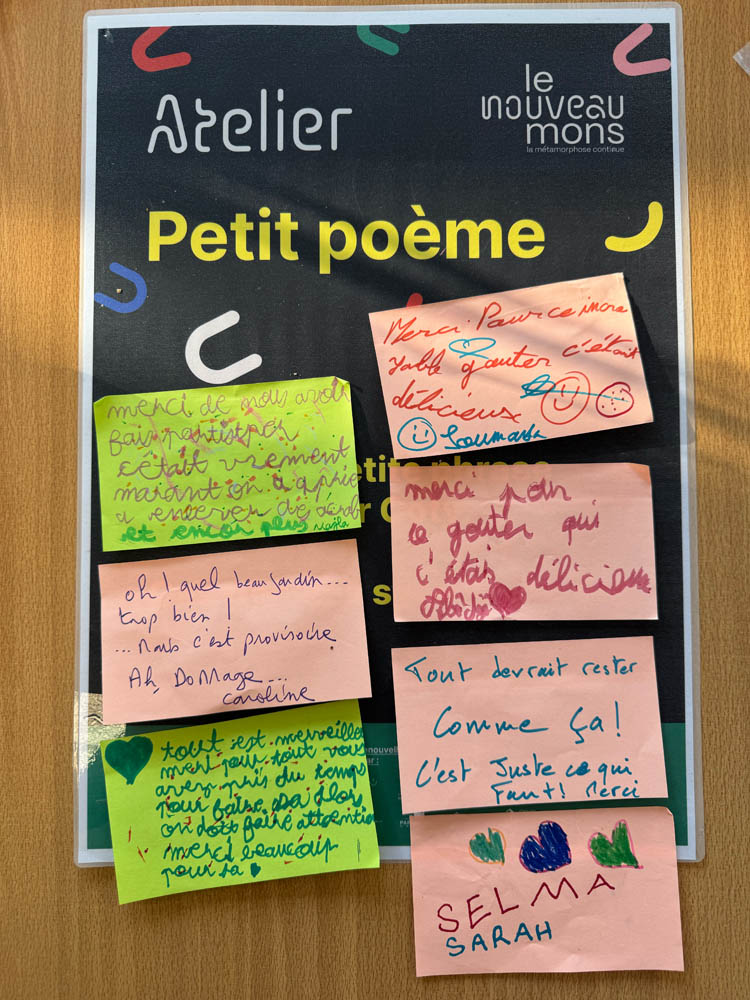 Atelier
le
nouveau
mons
la métamorphose continue
Petit poème
merci de nous avoir
fais
c était vrement
marant on a
a
et encor plus
oh ! quel beau jardin...
trop bien !
... Mais c'est provisoire
Ah, DOMMAGE...
caroline
tout est merveille
merci pour tout vous
avez pris du temps
pour faire sa alors
on doit faire attention
merci beaucoup
pour sa
Merci Pour ce incro
yable gouter c'était
délicieux
etite phrase
merci pour
ce gouter qui
c'étais délicieux
s
Tout devrait rester
Comme ça !
C'est Juste ce qui
Faut! Merci
enouvell
SELMA
SARAH